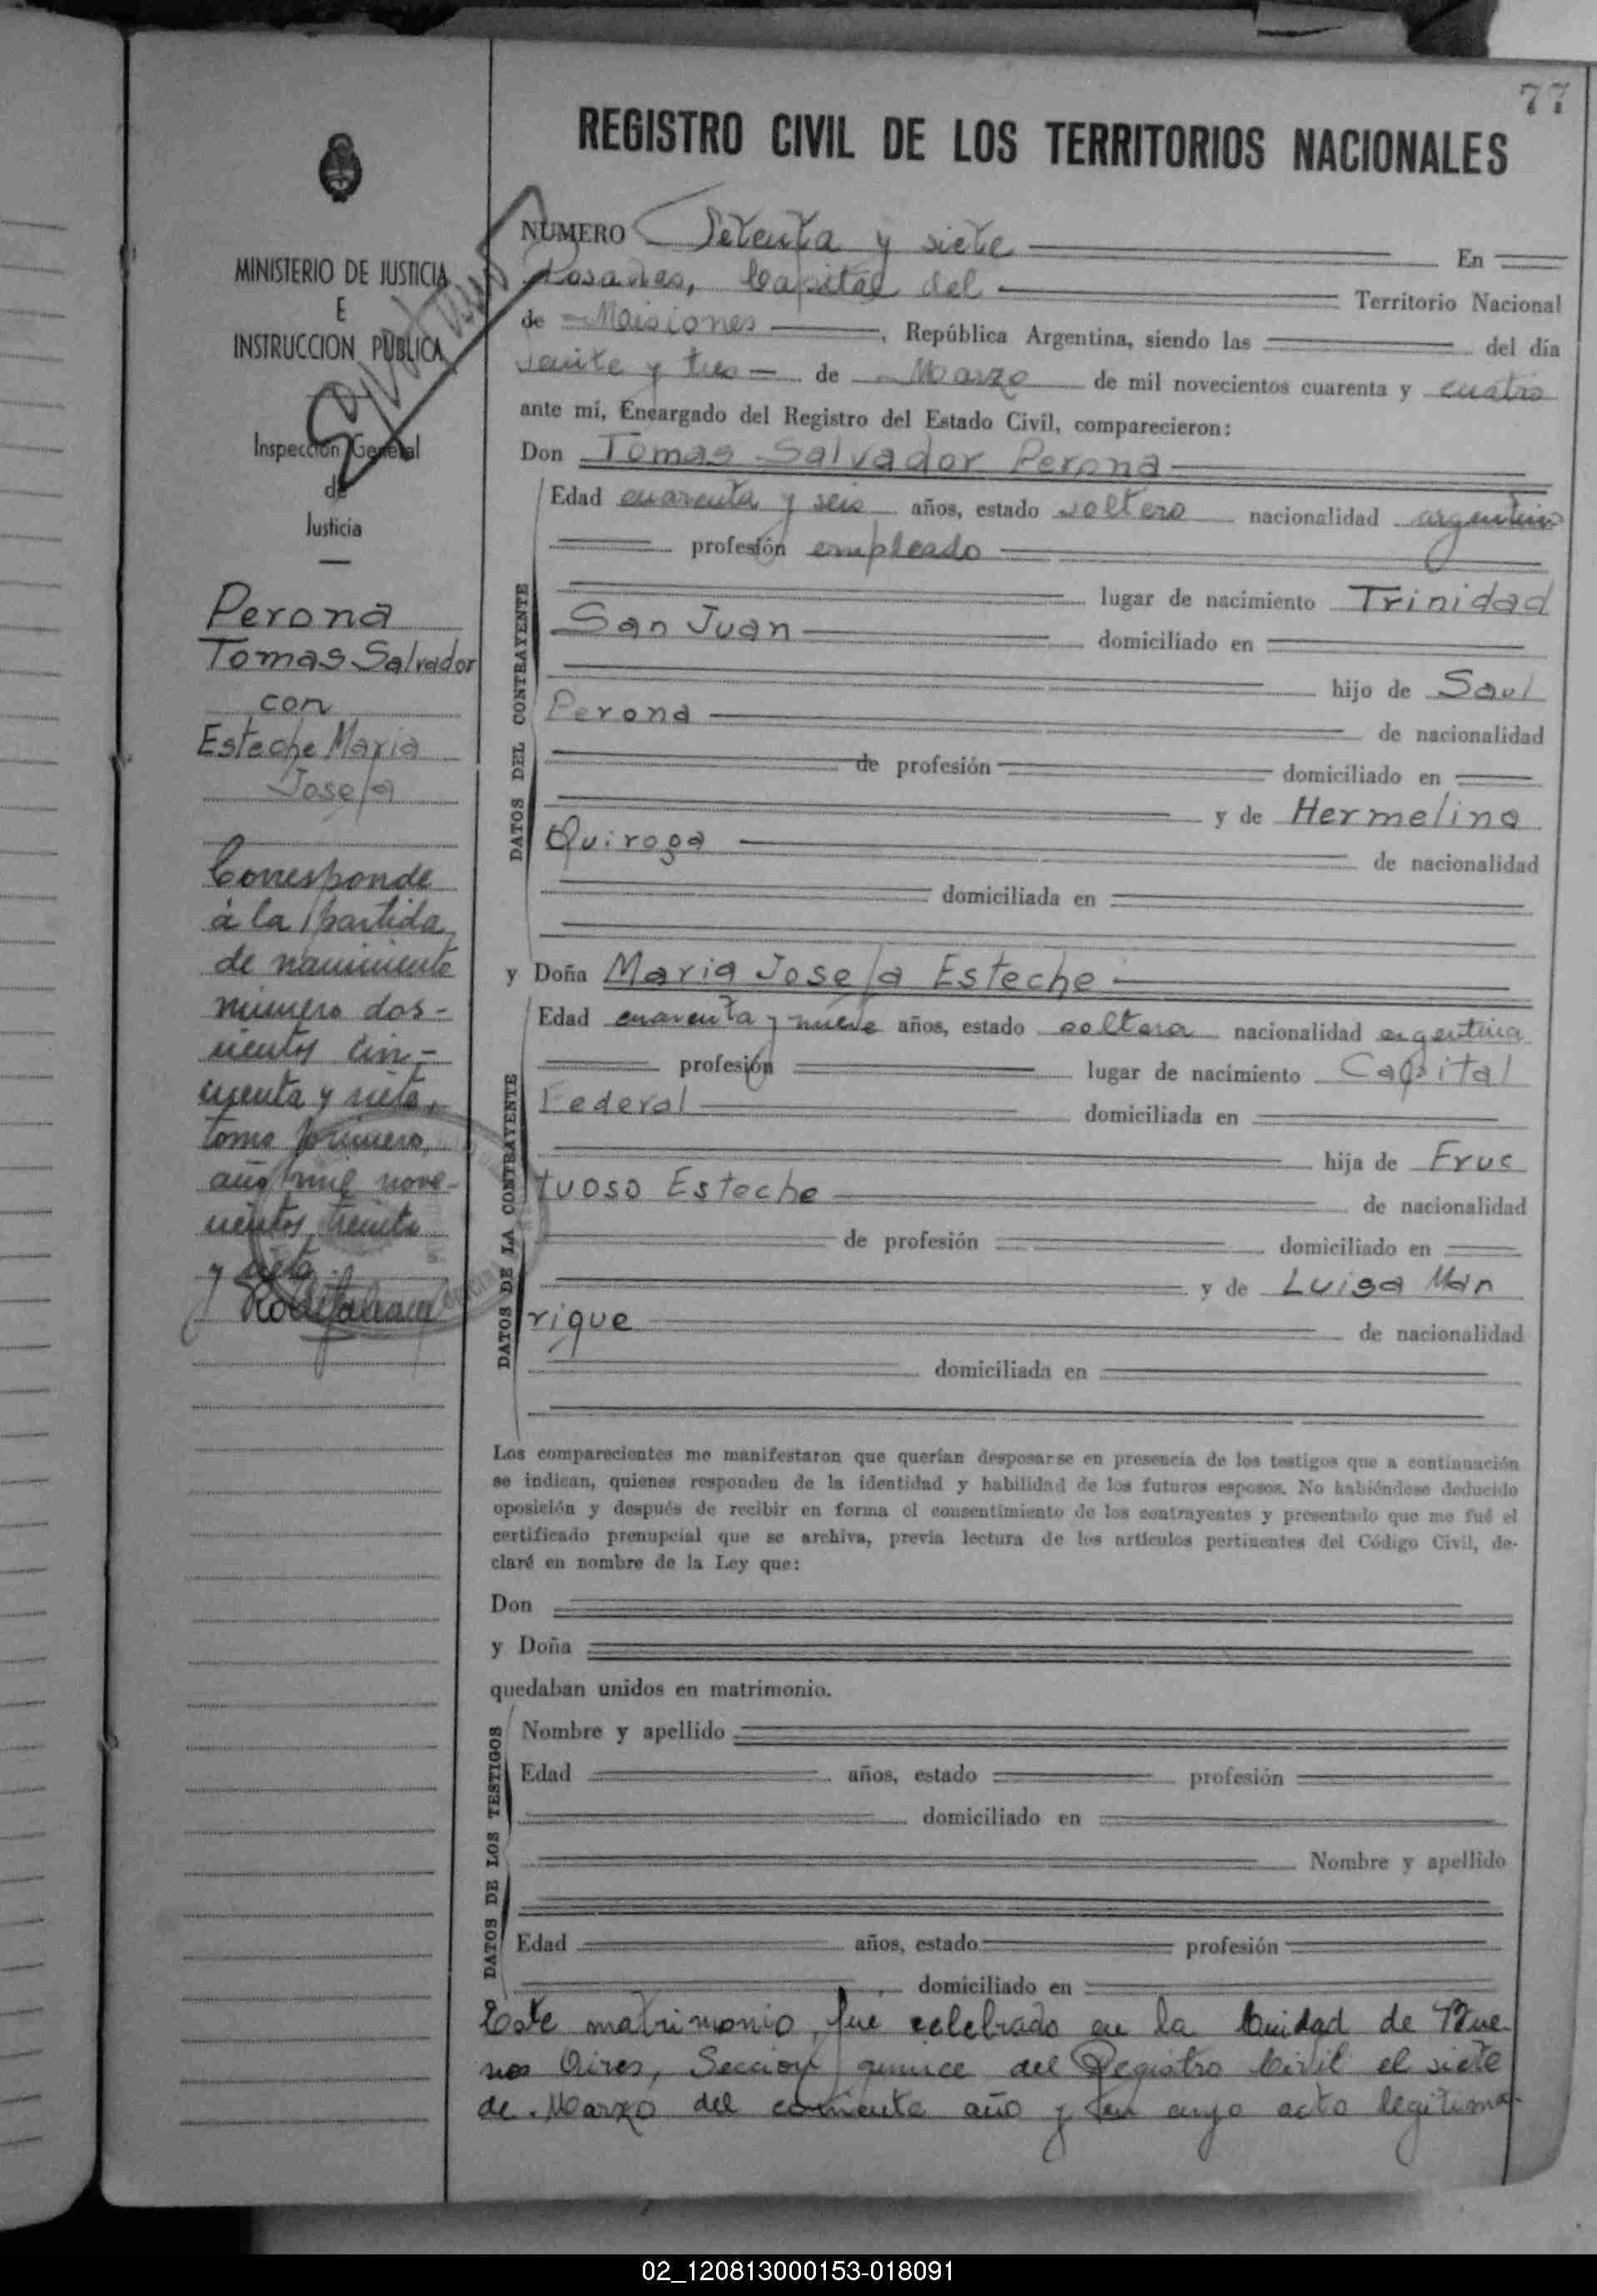 77
REGISTRO CIVIL DE LOS TERRITORIOS NACIONALES
MINISTERIO DE JUSTICIA
E
INSTRUCCION PUBLICA
Inspección General
de
Justicia
Perona
Tomas Salvador
con
Esteche Maria
Josefa
Corresponde
à la partida
de nacimiento
número dos-
cientos cin-
cuenta y siete,
tomo primero,
año mil nove-
cientos treinta
y siete.
NUMERO Setenta y siete En
Posadas, Capital del Territorio Nacional
de Misiones, República Argentina, siendo las del día
veinte y tres de Marzo de mil novecientos cuarenta y cuatro
ante mí, Encargado del Registro del Estado Civil, comparecieron:
Don Tomas Salvador Perona
DATOS DEL CONTRAYENTE
Edad cuarenta y seis años, estado soltero nacionalidad argentino
profesión empleado
lugar de nacimiento Trinidad
San Juan domiciliado en
hijo de Saul
Perona de nacionalidad
de profesión domiciliado en
y de Hermelina
Quiroga de nacionalidad
domiciliada en
y Doña Maria Josefa Esteche
DATOS DE LA CONTRAYENTE
Edad cuarenta y nueve años, estado soltera nacionalidad argentina
profesión lugar de nacimiento Capital
Federal domiciliada en
hija de Fruc
tuoso Esteche de nacionalidad
de profesión domiciliado en
y de Luisa Man
rique de nacionalidad
domiciliada en
Los comparecientes me manifestaron que querían desposarse en presencia de los testigos que a continuación
se indican, quienes responden de la identidad y habilidad de los futuros esposos. No habiéndose deducido
oposición y después de recibir en forma el consentimiento de los contrayentes y presentado que me fué el
certificado prenupcial que se archiva, previa lectura de los artículos pertinentes del Código Civil, de-
claré en nombre de la Ley que:
Don
y Doña
quedaban unidos en matrimonio.
DATOS DE LOS TESTIGOS
Nombre y apellido
Edad años, estado profesión
domiciliado en
Nombre y apellido
Edad años, estado profesión
domiciliado en
Este matrimonio, fué celebrado en la Ciudad de Bue-
nos Aires, Seccion quince del Registro Civil el siete
de Marzo del corriente año y en cuyo acto legitima-
02_120813000153-018091